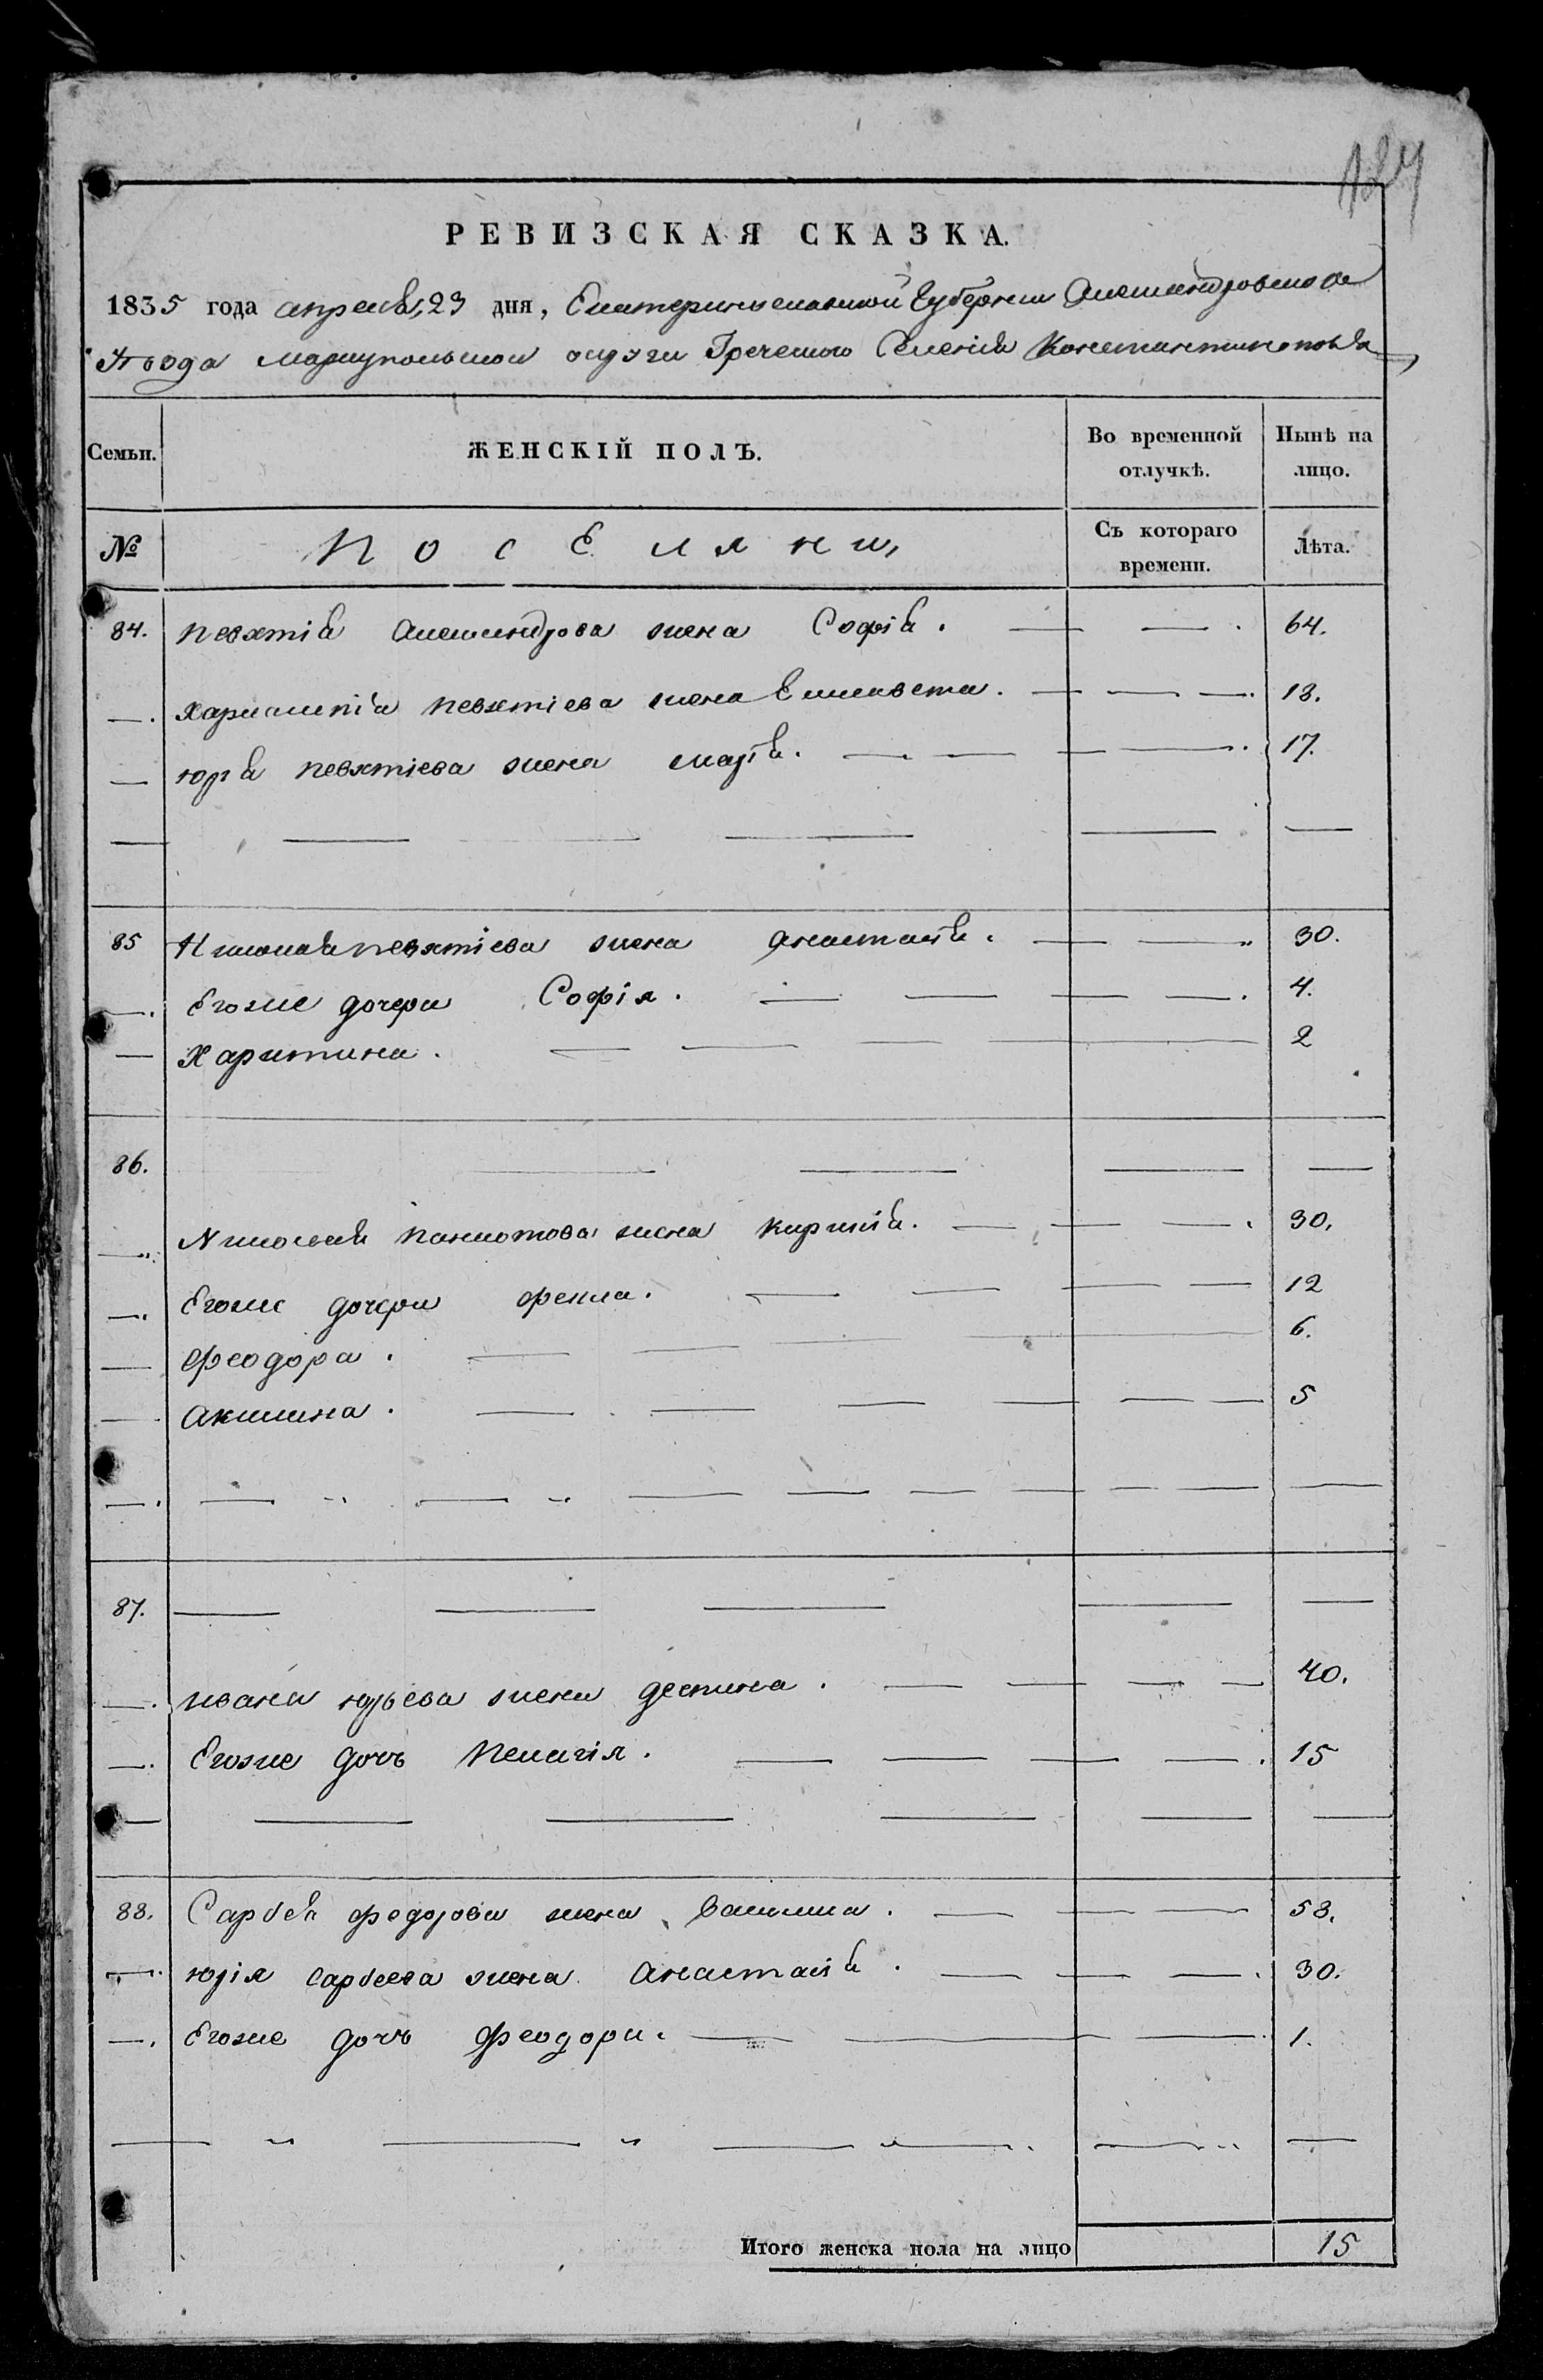 РЕВИЗСКАЯ СКАЗКА.
1835 года апреля 23 дня, Екатеринославской Губернии Александровскаго
Уезда Мариупольской округи Греческого Селения Константинополя
Семьи. ЖЕНСКІЙ ПОЛЪ. Во временной отлучкѣ. Нынѣ на лицо.
№ Поселяни Съ котораго времени. Лѣта.
84. Певхтія Александрова жена Софія. 64.
Харлампія Певхтіева жена Елисавета. 18.
Юрія Певхтіева жена Марія. 17.
85 Николая Певхтіева жена Анастасія. 30.
Егоже дочери Софія. 4.
Харитина. 2
86.
Николая Панаиотова жена Кирикія. 30.
Егоже дочери Фекла. 12
Феодора. 6.
Акилина. 5
87.
Ивана Юрьева жена Деспина. 40.
Егоже дочь Пелагія. 15
88. Сарбея Федорова жена Василиса. 58.
Юрія Сарбеева жена Анастасія. 30.
Егоже дочь Феодора. 1.
Итого женска пола на лицо 15